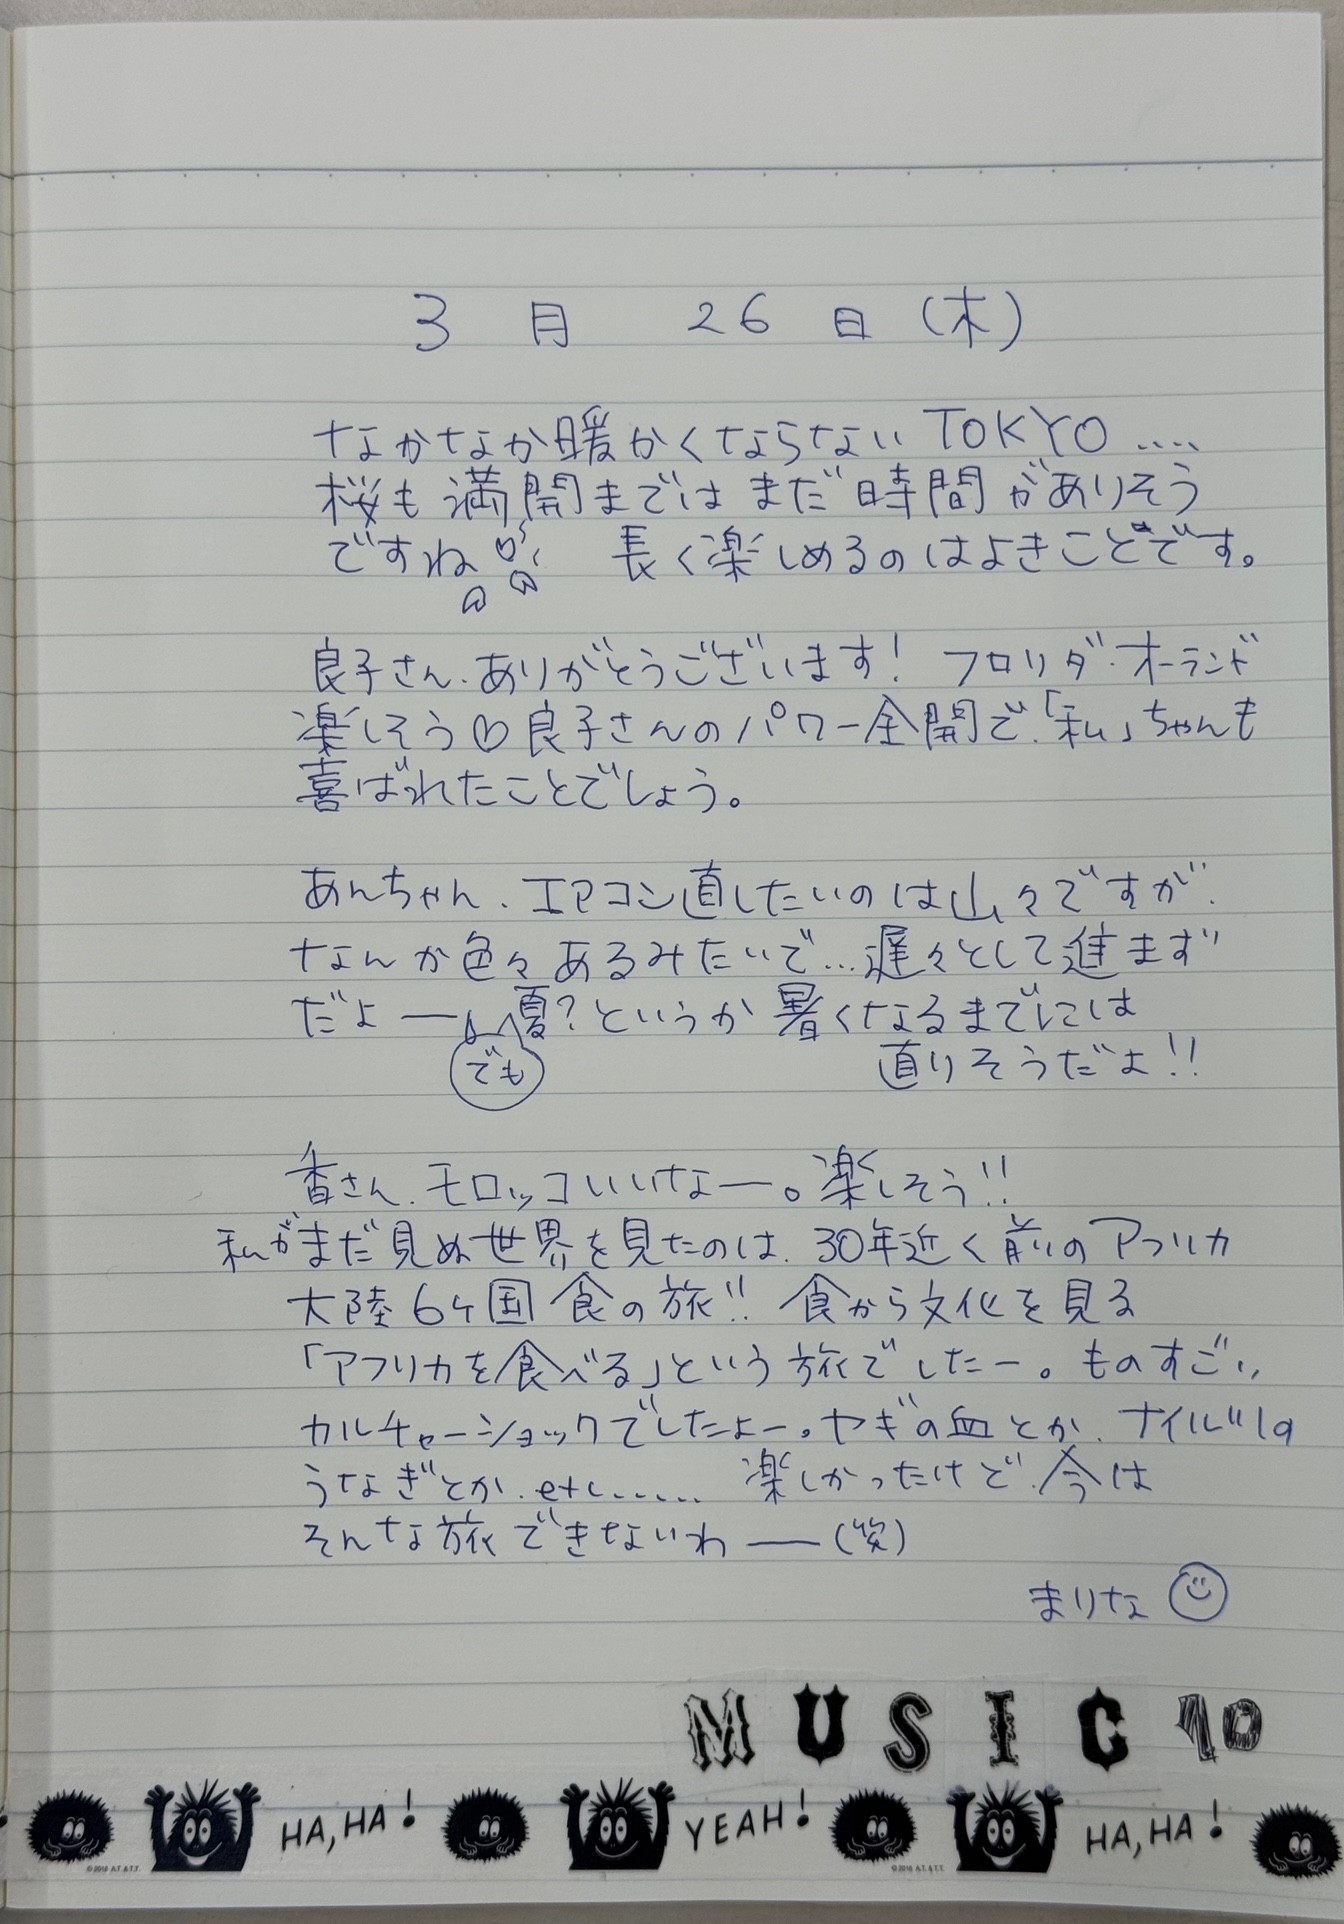 3月 26日(木)
なかなか暖かくならないTOKYO....
桜も満開まではまだ時間がありそう
ですね 長く楽しめるのはよきことです。
良子さん、ありがとうございます! フロリダ・オーランド
楽しそう♡良子さんのパワー全開で、「私」ちゃんも
喜ばれたことでしょう。
あんちゃん、エアコン直したいのは山々ですが、
なんか色々あるみたいで...遅々として進まず
だよー 夏?というか暑くなるまでには
でも
直りそうだよ!!
香さん、モロッコいいなー。楽しそう!!
私がまだ見ぬ世界を見たのは、30年近く前のアフリカ
大陸6ヶ国食の旅!! 食から文化を見る
「アフリカを食べる」という旅でしたー。ものすごい
カルチャーショックでしたよー。ヤギの血とか、ナイル川の
うなぎとか、etc...... 楽しかったけど、今は
そんな旅できないわー(笑)
まりな
MUSIC 10
HA, HA! YEAH! HA, HA!